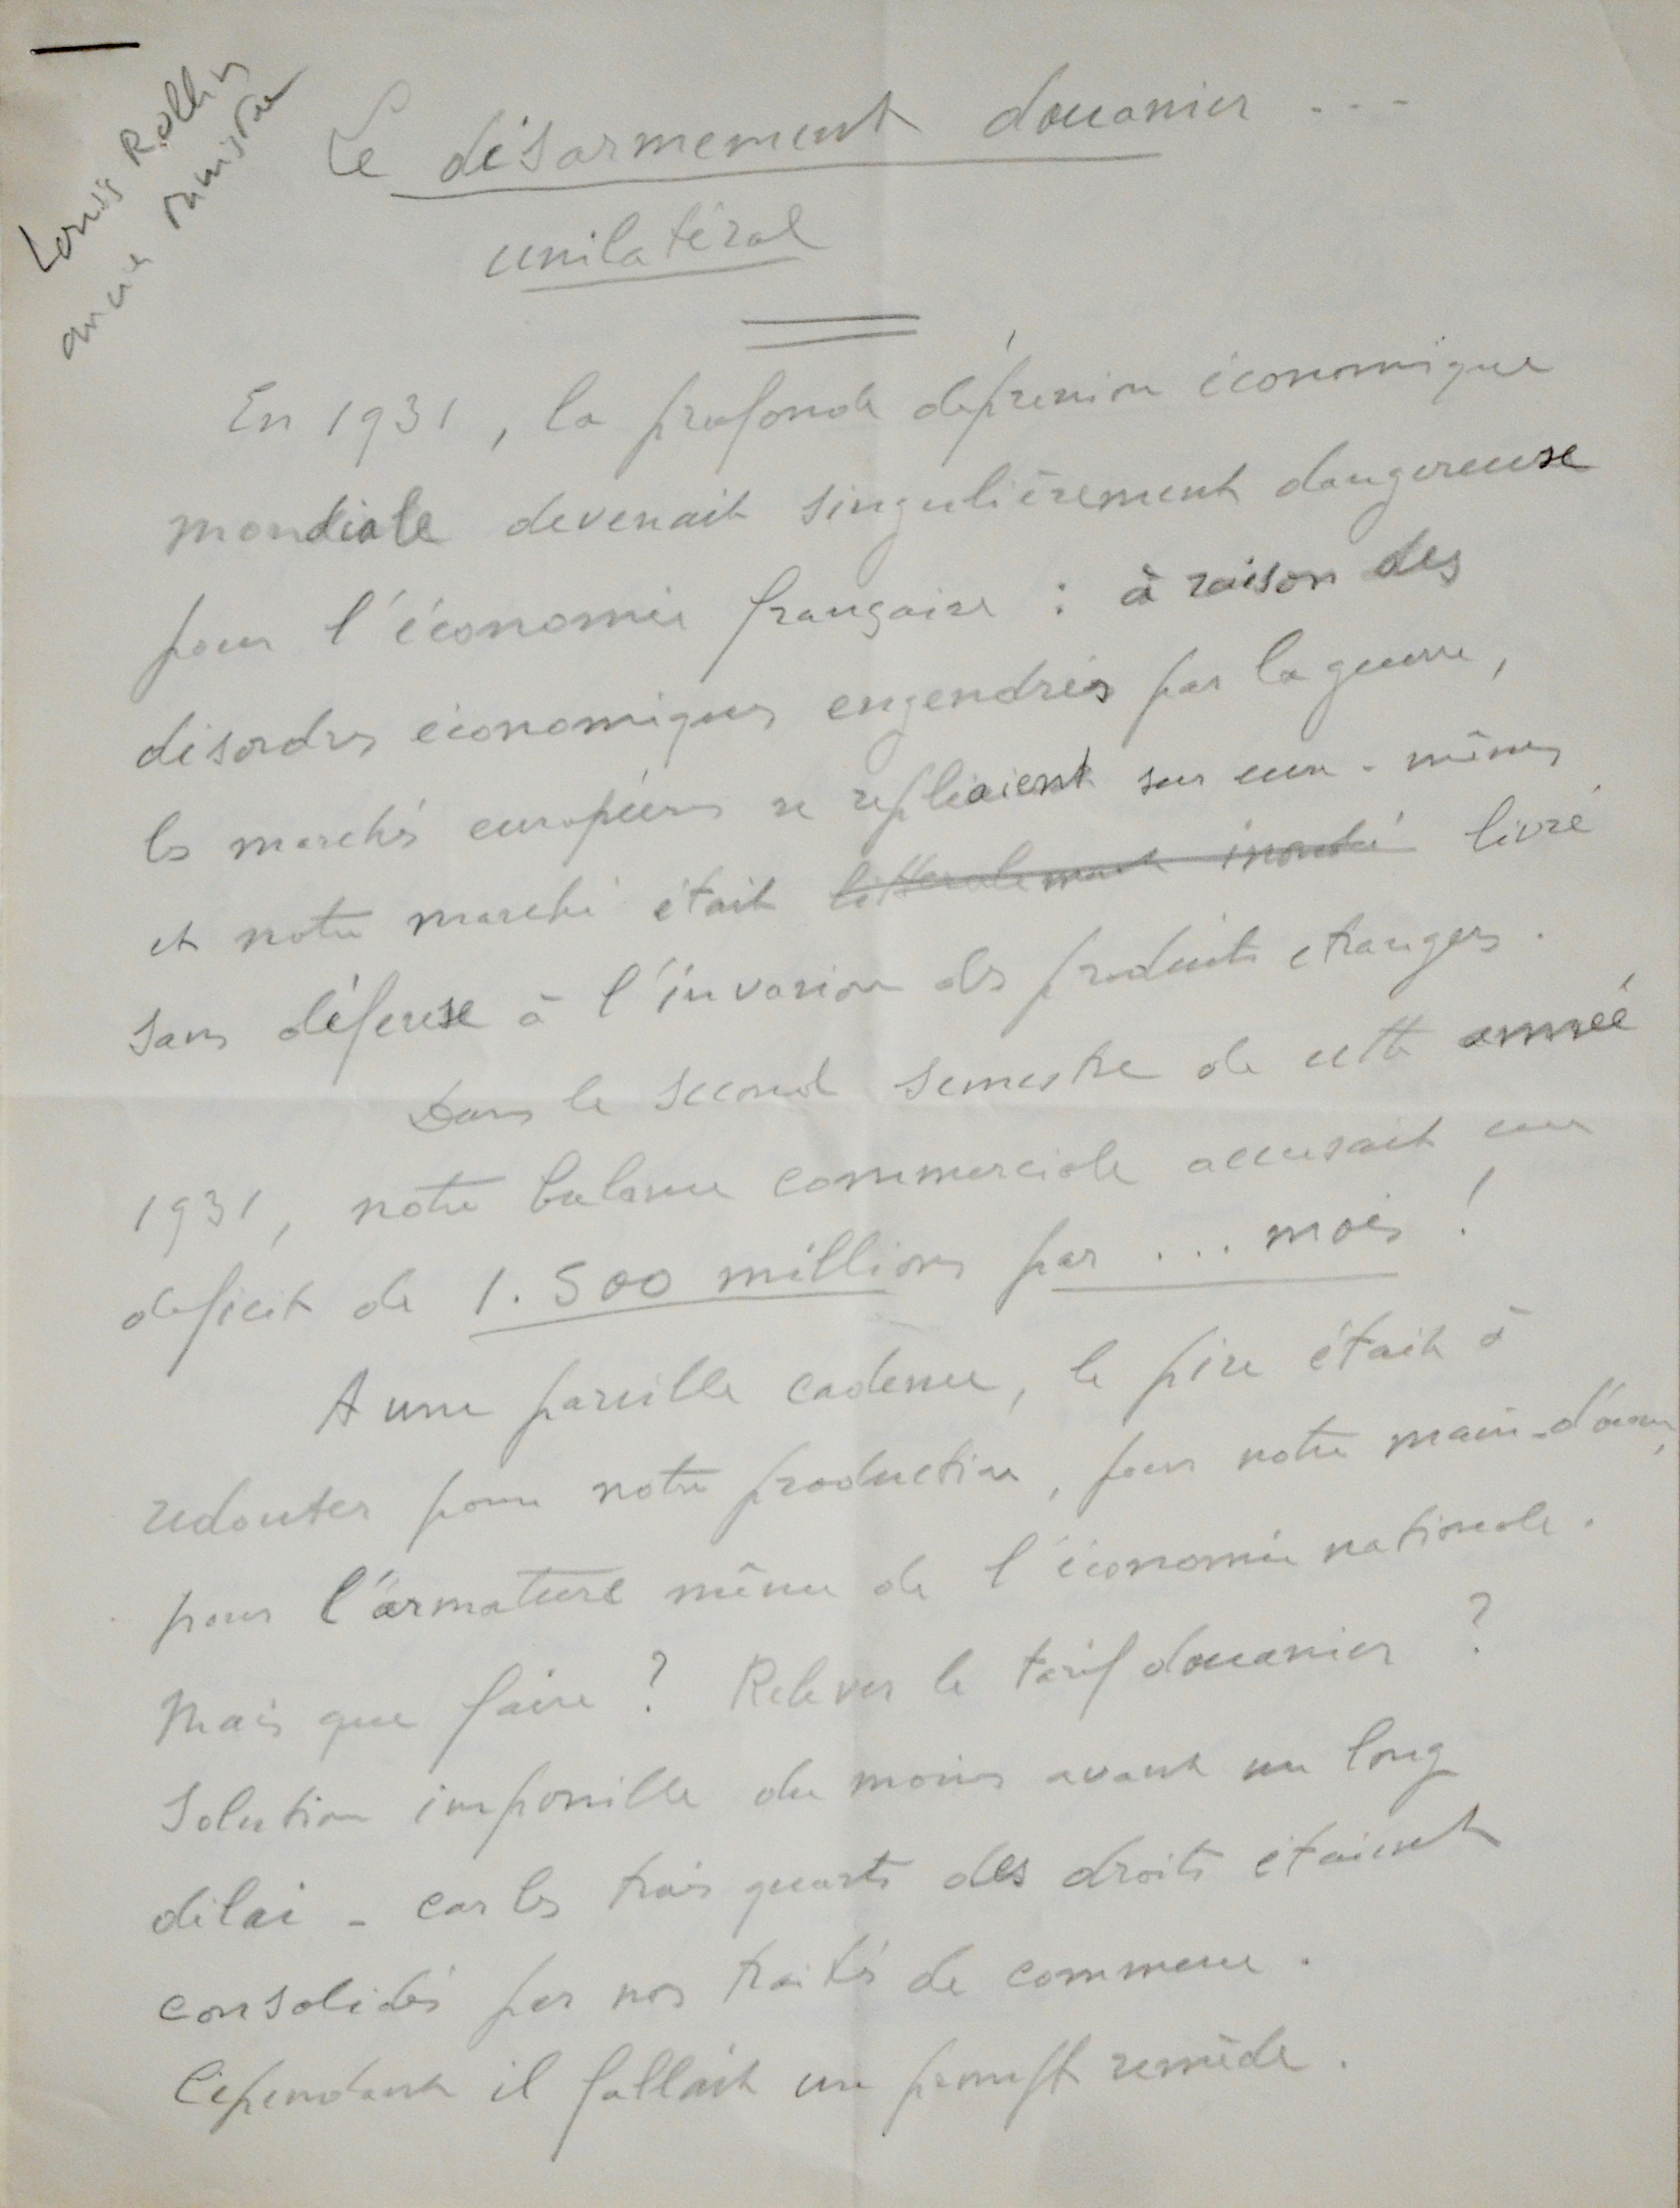 Louis Rollin
ancien ministre
Le désarmement douanier ...
unilatéral
En 1931, la profonde dépression économique
mondiale devenait singulièrement dangereuse
pour l'économie française : à raison des
désordres économiques engendrés par la guerre,
les marchés européens se repliaient sur eux-mêmes
et notre marché était littéralement inondé livré
sans défense à l'invasion des produits etrangers.
Dans le second semestre de cette année
1931, notre balance commerciale accusait un
deficit de 1.500 millions par ... mois !
A une pareille cadence, le pire était à
redouter pour notre production, pour notre main-d'œuvre,
pour l'armature même de l'économie nationale.
Mais que faire ? Relever le tarif douanier ?
Solution impossible du moins avant un long
délai - car les trois quarts des droits étaient
consolidés par nos traités de commerce.
Cependant il fallait un prompt remède.